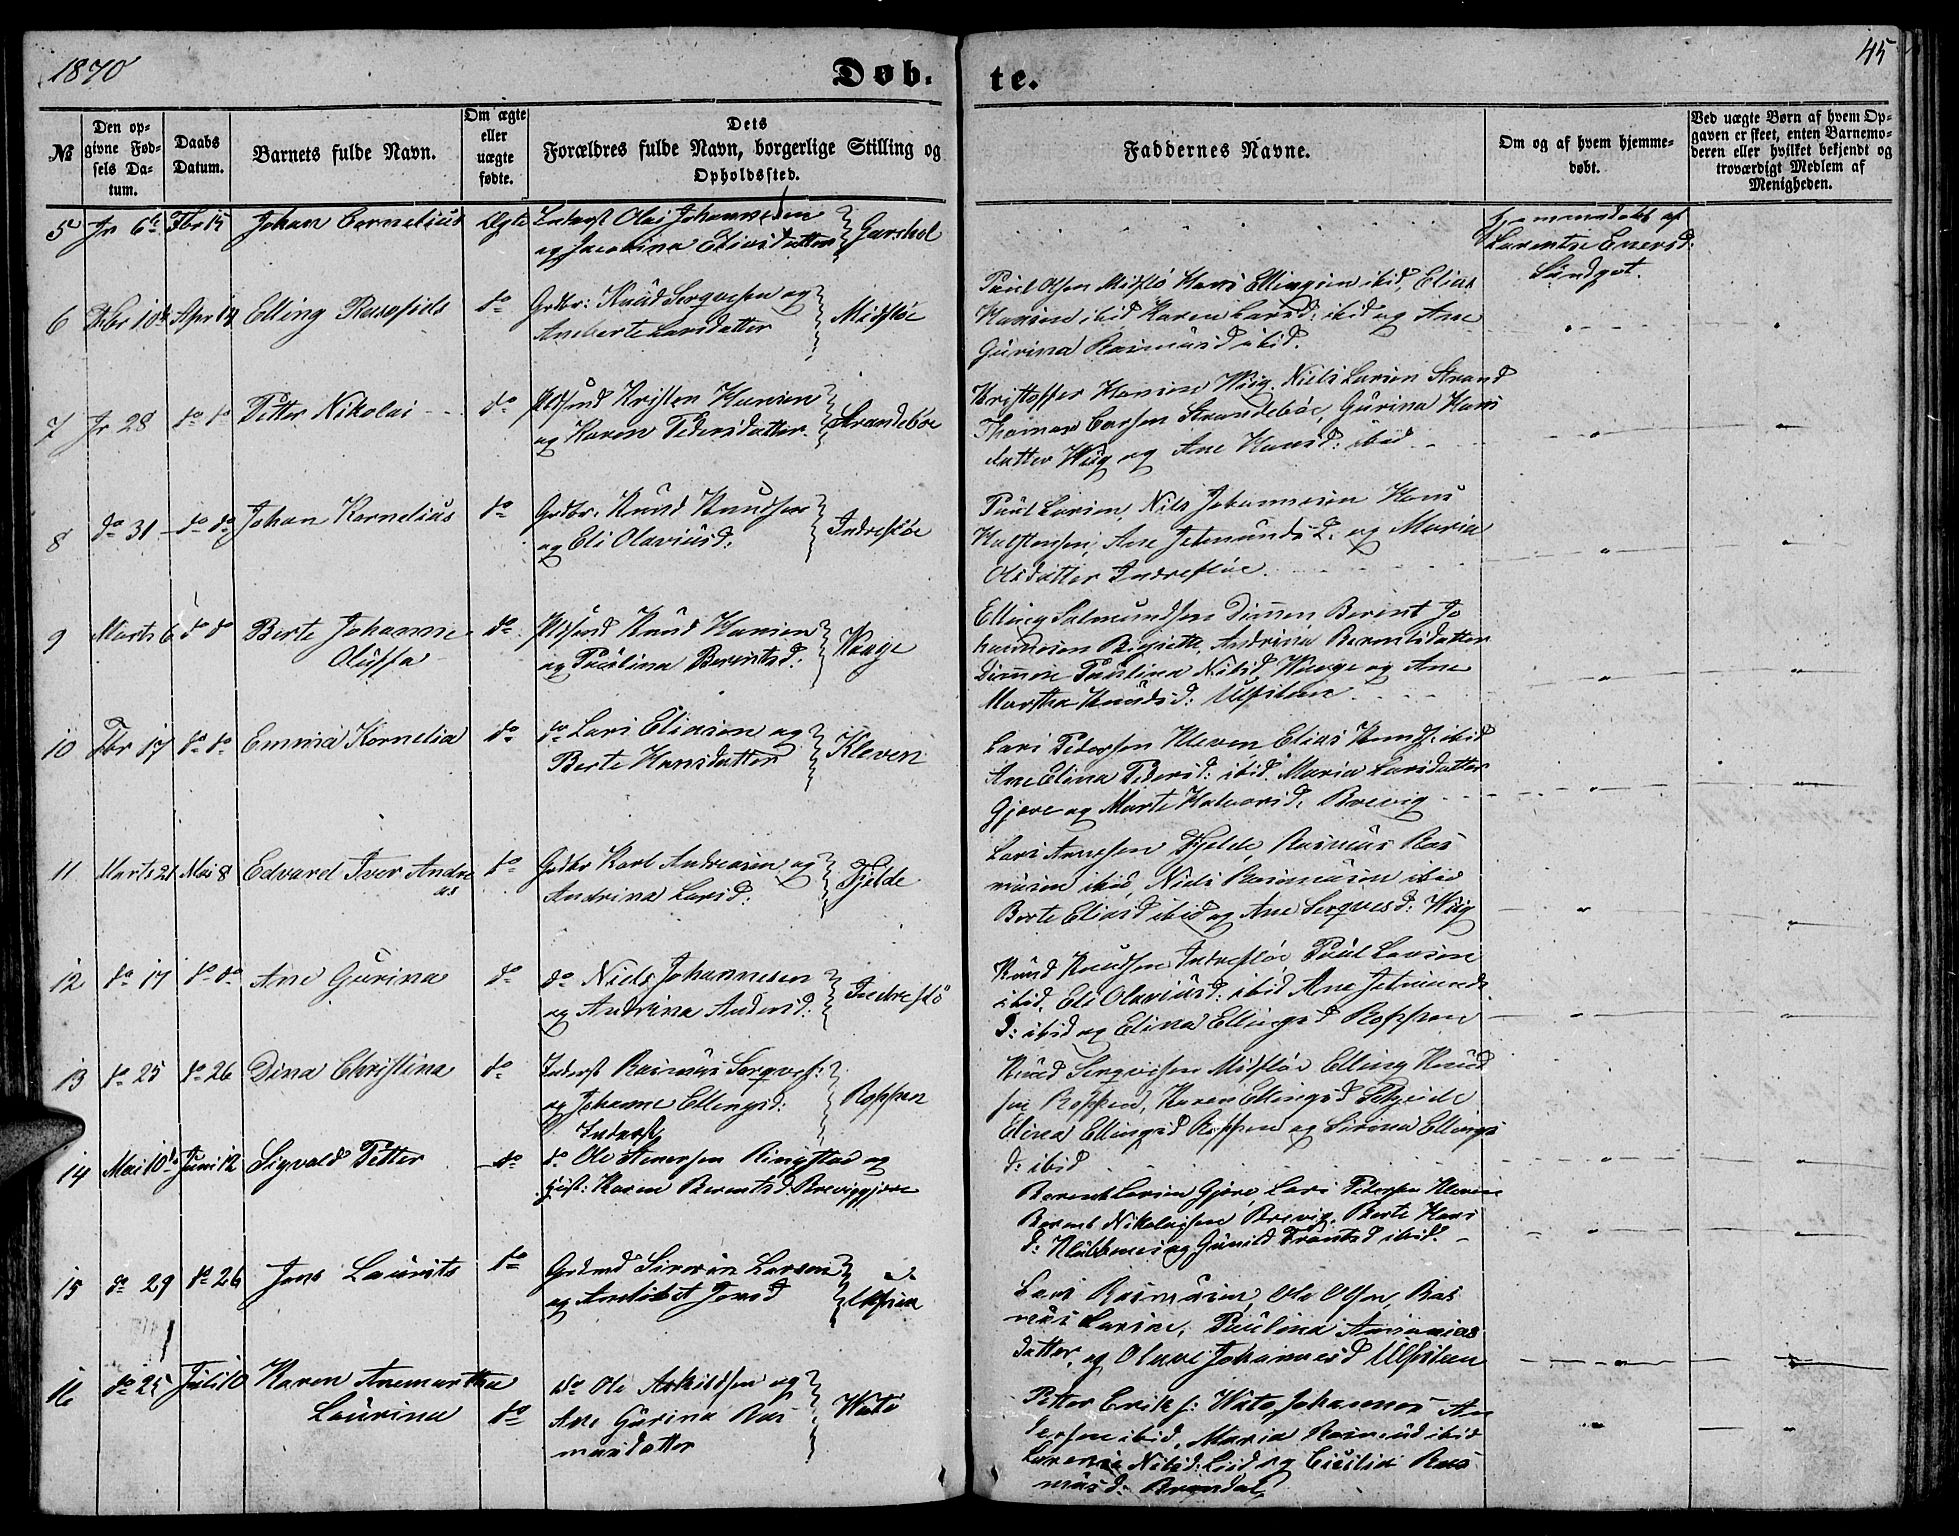 1870
Døb-
te.
45
№
Den op-
givne Fød-
sels Da-
tum.
Daabs
Datum.
Barnets fulde Navn.
Om ægte
eller
uægte
fødte.
Dets
Forældres fulde Navn, borgerlige Stilling og
Opholdssted.
Faddernes Navne.
Om og af hvem hjemme-
døbt.
Ved uægte Børn af hvem Op-
gaven er skeet, enten Barnemo-
deren eller hvilket bekjendt og
troværdigt Medlem af
Menigheden.
5 Jr 6te Fbr 15 Johan Cornelius Ægte Inderst Olai Johannesen
og Jacobina Eliasdatter Garshol
Hjemmedøbt af
Larentse Eversd:
Sundgot.
6 Fbr 10de Apr 18 Elling do Grdbr: Knud Serqvesen og
Aneberte Larsdatter Midfløe
Paul Olsen Midflø Hans Ellingsen ibid, Elias
Hansen ibid Karen Larsd: ibid og Ane
Gurina Rasmusd ibid.
7 Jr 28 do do Petter Nikolai do Kristen Hansen
og Karen Pedersdatter Strandeboe
Kristoffer Hansen Wiig. Niels Larsen Strand
Thomas Larsen Strandebøe, Gurina Hans
datter Wiig og Ane Hansd: ibid
8 do 31 do do Johan Kornelius do Grdbr. Knud Knudsen
og Eli Olaviusd: Indrefløe
Paul Larsen, Nils Johannesen Hans
Ane Jetmundsd. og Maria
Olsdatter Indrefløe.
9 Marts 6 do do Berte Johanne
do Knud Hansen
og Paulina Berntsd: Waage
Elling Salmundsen Dimen Berent Jo
hannesen Andrina Berentsdatter
Dimen Paulina Nilsd Waage og Ane
Martha Knudsd: Ulfsten
10 Fbr 17 do do Emma Kornelia do do Lars Eliasen og
Berte Hansdatter Kleven
Lars Pedersen Kleven Elias Knuds: ibid
Ane Elina Pedersd: ibid. Maria Larsdatter
Gjøre og Marte Halvorsd. Brevig
11 Marts 21 Mai 8 Edvard Iver Andre
as do Grdbr Karl Andreasen og
Andrina Larsd: Fjelde
Lars Arnesen Fjelde, Rasmus Ras
musen ibid, Niels Rasmusen ibid
Berte Eliasd ibid og Ane Serqvesd: Wiig
12 do 17 do do Ane Gurina do do Niels Johannesen
og Andrina Andersd: Indreflø
Knud Knudsen Indrefløe Paul Larsen
ibid, Eli Olaviusd: ibid Ane Jetmunds
d: ibid og Elina Ellingsd Roppen
13 do 25 do 26 Dina Christina do Inderst Rasmus Serqves:
og Johanne Ellingsd: Roppen
Knud Serqvesen Midfløe Elling Knud
sen Roppen, Karen Ellingsd
Elina Ellingsd Roppen og Sirena Ellings
d: ibid
14 Mai 10de Juni 12 Sigvald Petter do Inderst
do Ole Steversen Ringstad og
Hust: Karen Berentsd: Breviggjøre
Berent Larsen Gjøre, Lars Pedersen Kleven
Berent Nikolaisen Brevig. Berte Hans
d: Klubbenes og Gunild Frantsd ibid.
15 do 29 do 26 Jens Laurits do Grdmd Siverin Larsen
og Anelisbet Jensd Ulfsten
Lars Rasmusen, Ole Olsen, Ras
mus Larsen, Paulina Ananias
datter, og Olave Johannesd Ulfsteen
16 do 25 Juli 10 Karen Anemartha
Laurina do do Ole Askildsen og
Ane Gurina Ras
musdatter Watø
Petter Eriks: Watø Johannes An
dersen ibid, Maria Rasmusd ibid
Nilsd: Lied og Cicilia Ras
musd: Brandal